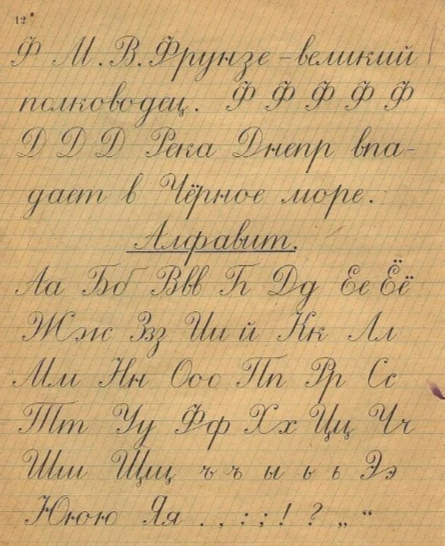 12
Ф М. В. Фрунзе – великий
полководец. Ф Ф Ф Ф Ф
Д Д Д Река Днепр впа-
дает в Чёрное море.
Алфавит.
Аа Бб Ввв Гг Дд Ее Ёё
Жж Ззз Ии й Кк Лл
Мм Нн Ооо Пп Рр Сс
Тт Уу Фф Хх Цц Чч
Шш Щщ ъ ъ ы ь ь Ээ
Ююю Яя . , : ; ! ? „ “